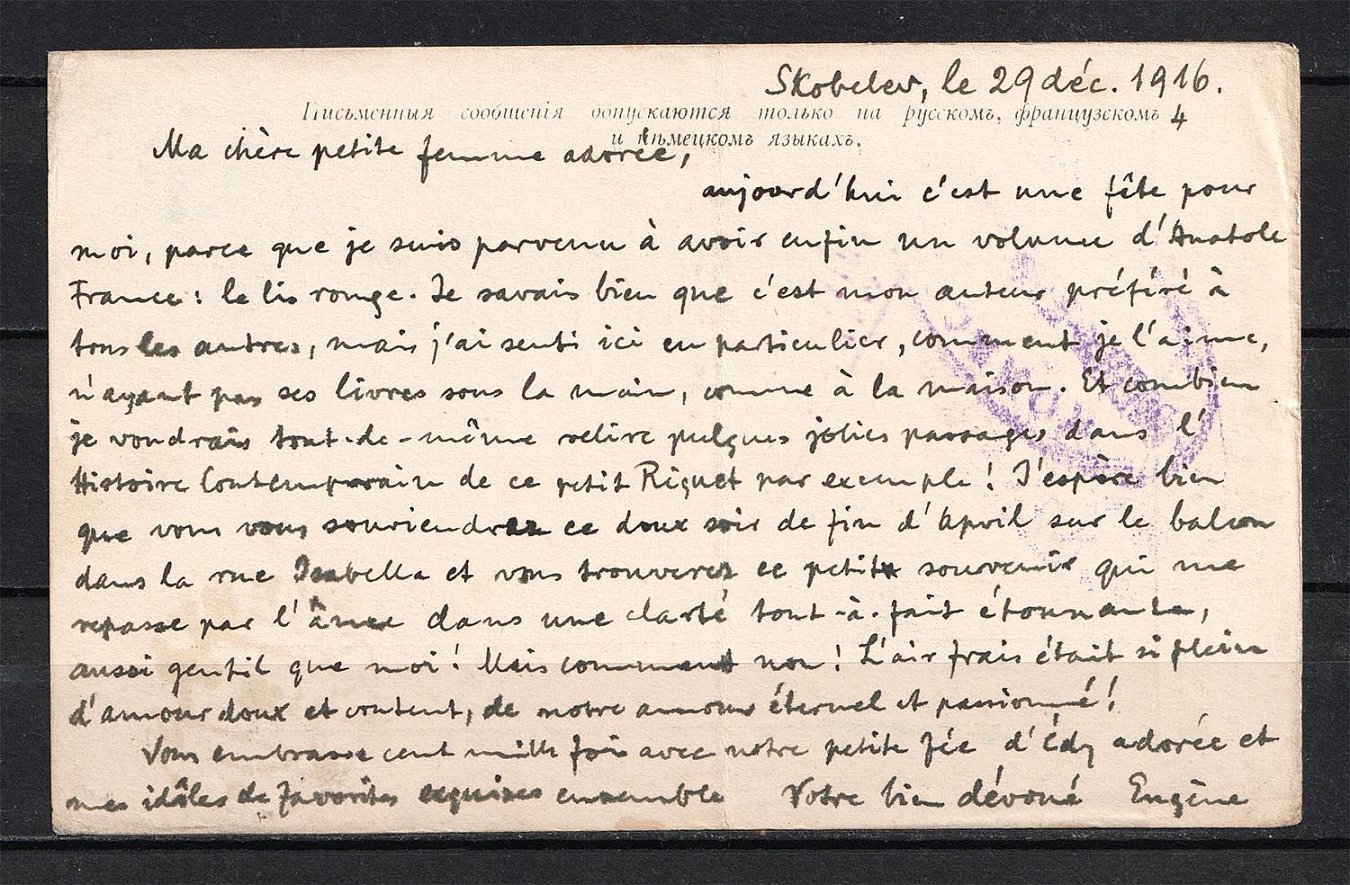 Skobelew, le 29 déc. 1916.
Письменныя сообщенія допускаются только на русскомъ, французскомъ 4
и нѣмецкомъ языкахъ.
Ma chère petite femme adorée,
aujourd'hui c'est une fête pour
moi, parce que je suis parvenu à avoir enfin un volume d'Anatole
France: le lis rouge. Je savais bien que c'est mon auteur préféré à
tous les autres, mais j'ai senti ici en particulier, comment je l'aime,
n'ayant pas ses livres sous la main, comme à la maison. Et combien
je voudrais tout-de-même relire pulques jolies passages dans l'
Histoire Contemporain de ce petit Riquet par exemple! J'espère bien
que vous vous souviendrez ce doux soir de fin d'April sur le balcon
dans la rue Isabella et vous trouverez ce petit souvenir qui me
repasse par l'âme dans une clarté tout-à-fait étonnante,
aussi gentil que moi! Mais comment non! L'air frais était si plein
d'amour doux et content, de notre amour éternel et passionné!
Vous embrasse cent mille fois avec notre petite fée d'Édy adorée et
mes idâles de favorites exquises ensemble Votre bien dévoué Eugène